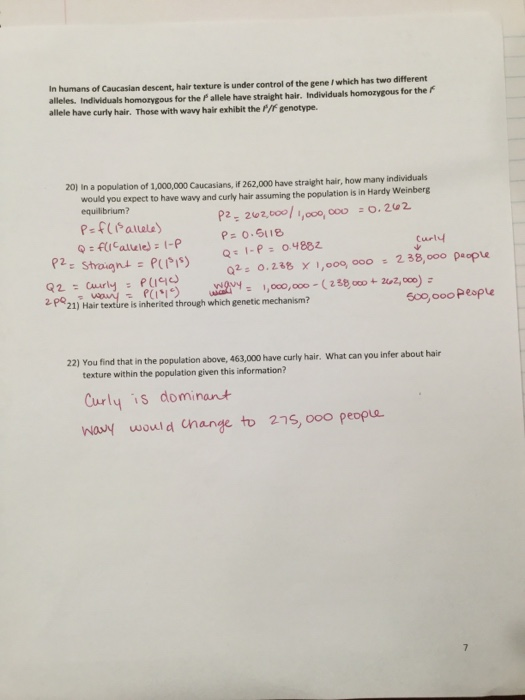 In humans of Caucasian descent, hair texture is under control of the gene I which has two different
alleles. Individuals homozygous for the Iˢ allele have straight hair. Individuals homozygous for the Iᶜ
allele have curly hair. Those with wavy hair exhibit the Iˢ/Iᶜ genotype.
20) In a population of 1,000,000 Caucasians, if 262,000 have straight hair, how many individuals
would you expect to have wavy and curly hair assuming the population is in Hardy Weinberg
equilibrium?
P2 = 262,000/1,000,000 = 0.262
P = f(Iˢ allele)
P = 0.5118
Q = f(Iᶜ allele) = 1-P
Q = 1-P = 0.4882
curly
P2 = straight = P(IˢIˢ)
Q2 = 0.238 X 1,000,000 = 238,000 people
Q2 = curly = P(IᶜIᶜ)
wavy = 1,000,000 - (238,000 + 262,000) =
2pq = wavy = P(IˢIᶜ)
500,000 people
21) Hair texture is inherited through which genetic mechanism?
22) You find that in the population above, 463,000 have curly hair. What can you infer about hair
texture within the population given this information?
Curly is dominant
Wavy would change to 275,000 people
7